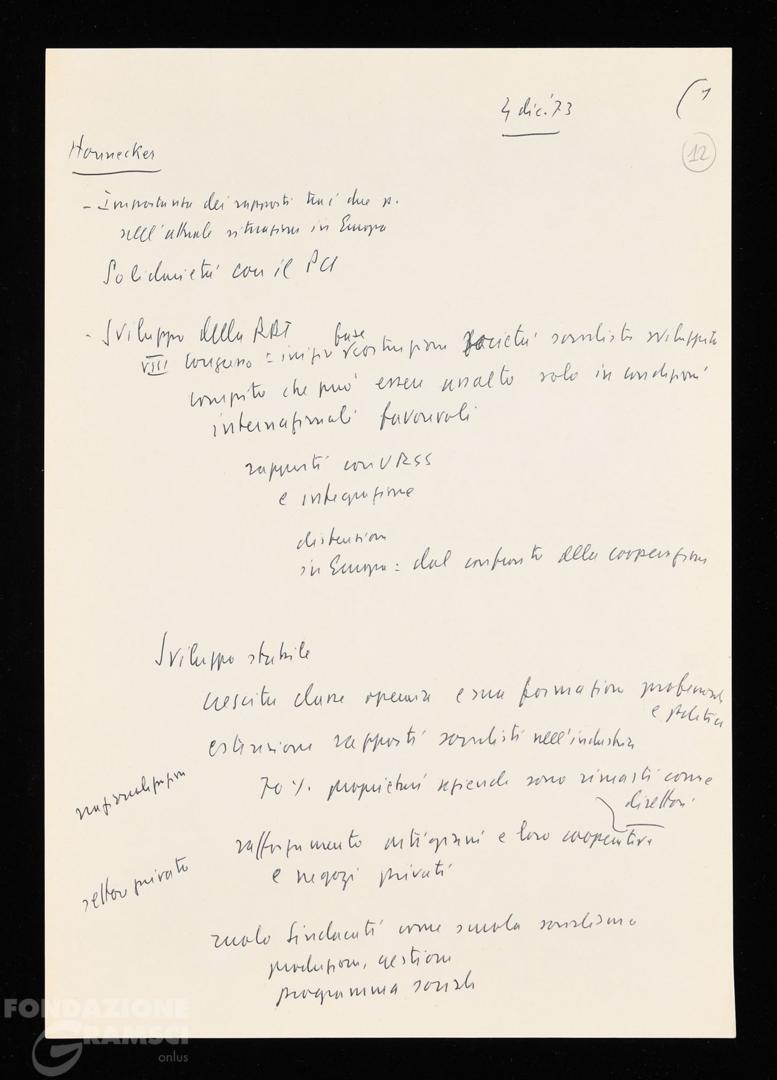 4 dic. '73
(1
12
Honnecker
- Importanza dei rapporti tra i due p.
nell'attuale situazione in Europa
Solidarietà con il PCI
- Sviluppo della RDT
base
VIII congresso = costruzione società socialista sviluppata
compito che può essere assolto solo in condizioni
internazionali favorevoli
rapporti con URSS
e integrazione
distensione
in Europa = dal confronto alla cooperazione
Sviluppo stabile
crescita classe operaia e sua formazione professionale
e politica
estensione rapporti socialisti nell'industria
nazionalizzazioni
70% proprietari aziende sono rimasti come
direttori
rafforzamento artigiani e loro cooperative
e negozi privati
settore privato
ruolo sindacati come scuola socialismo
produzione, gestione
programma sociale
FONDAZIONE
GRAMSCI
onlus